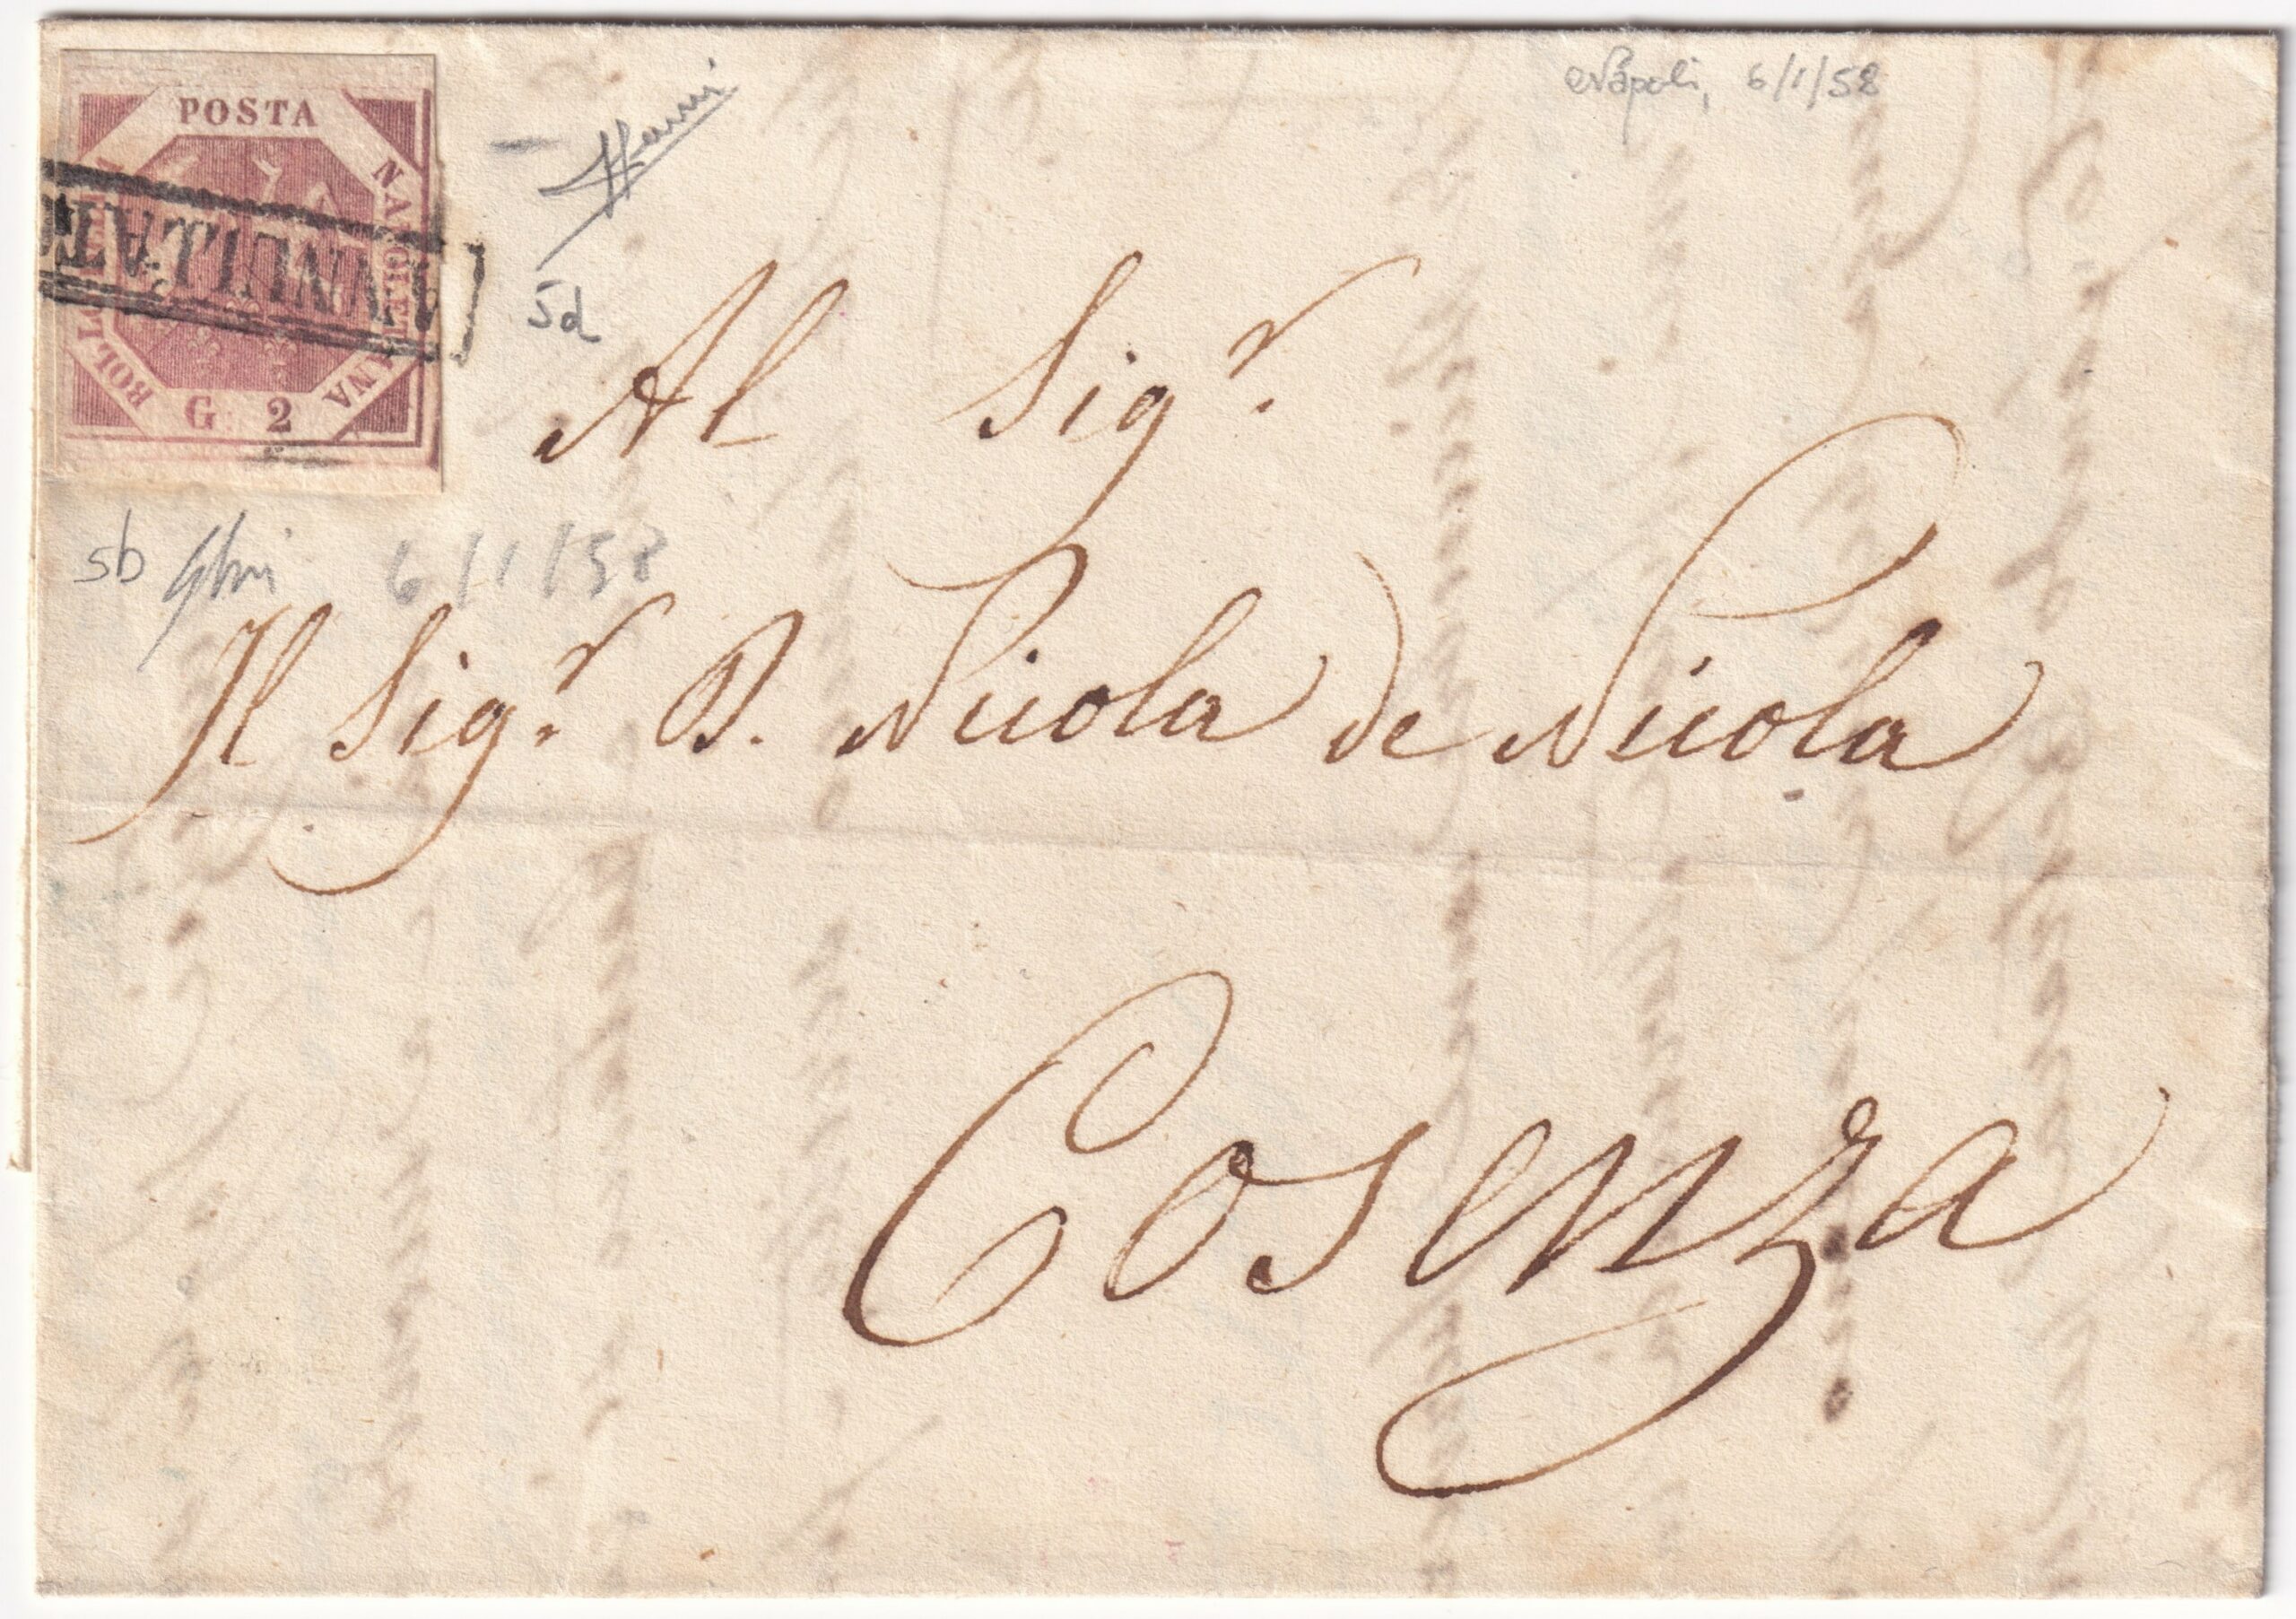 POSTA
NAPOLETANA
BOLLO
G. 2
ANNULLATO
Napoli, 6/1/58
5d
5b
6/1/58
Al Sig.r
Il Sig.r D. Nicola de Nicola
Cosenza